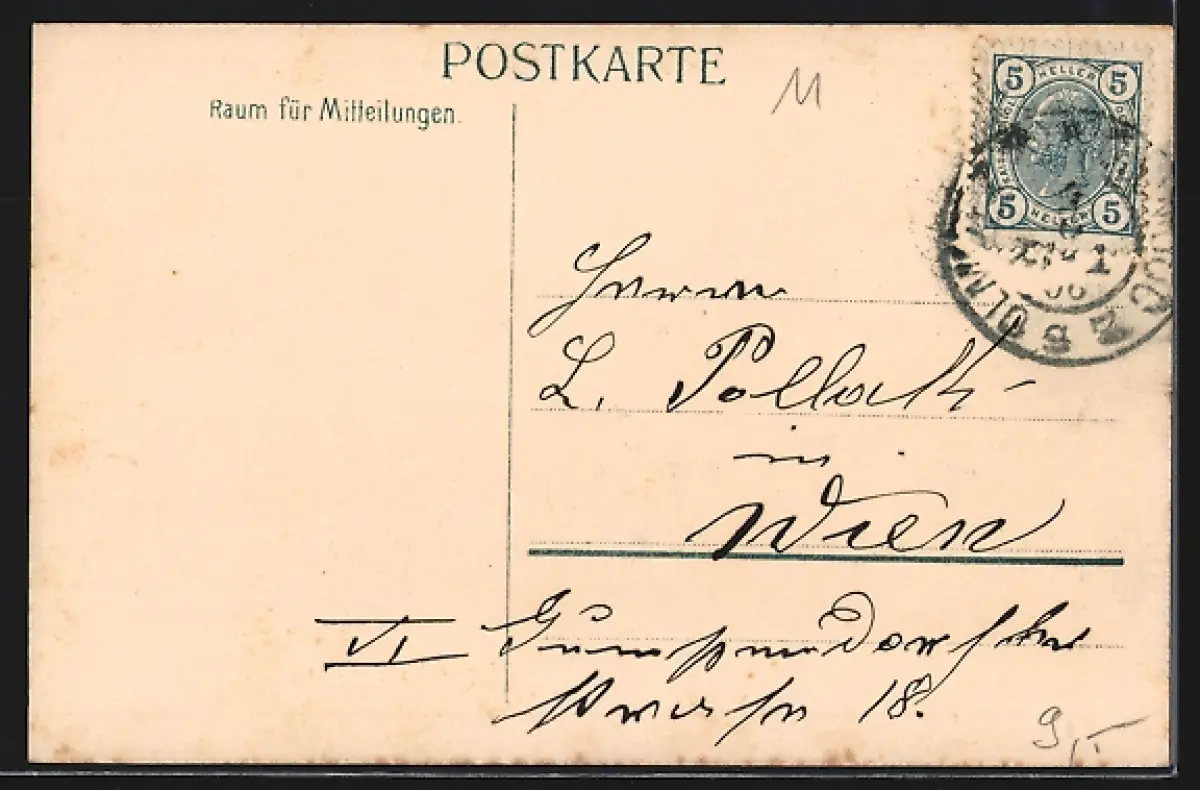 POSTKARTE
Raum für Mitteilungen.
11
5 HELLER 5
5 HELLER 5
Herrn
L. Pollak
in
Wien
VI Gumpendorfer
strasse 18.
9,-